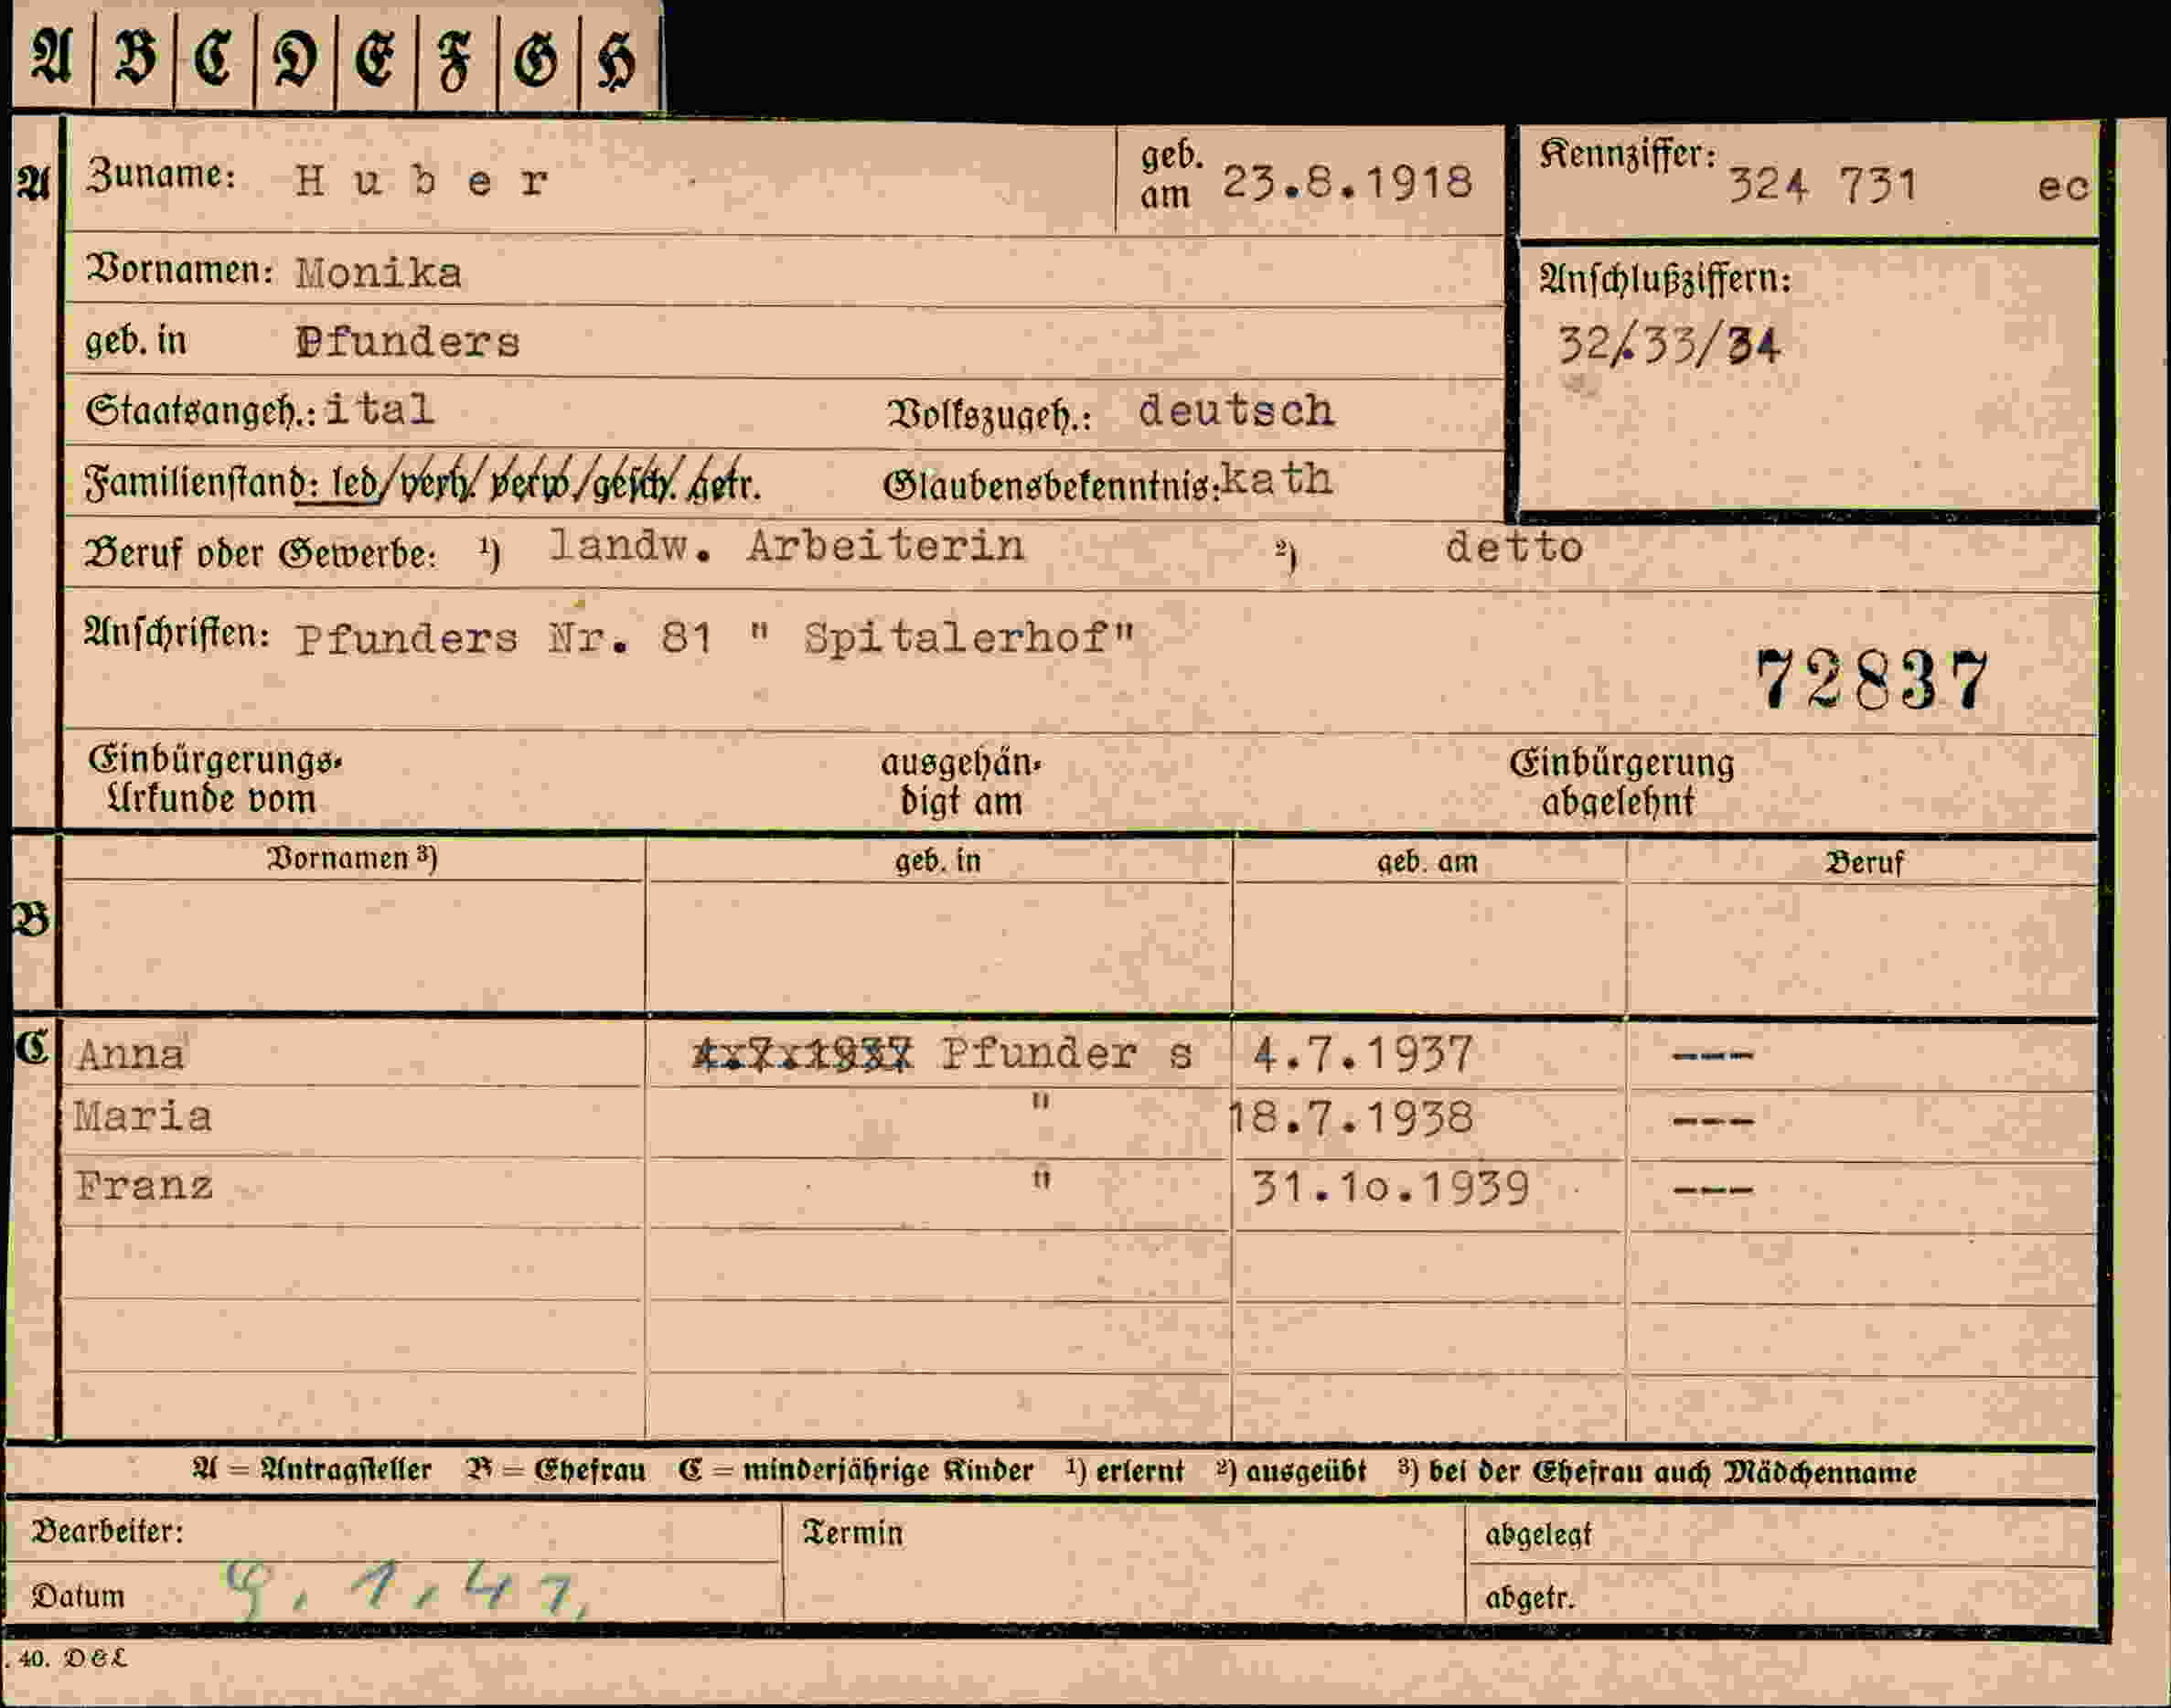 A B C D E F G H
A Zuname: Huber geb. am 23.8.1918 Kennziffer: 324 731 ec
Vornamen: Monika
Anschlußziffern:
geb. in Pfunders
32/33/34
Staatsangeh.: ital Volkszugeh.: deutsch
Familienstand: led/verh./verw/gesch./getr. Glaubensbekenntnis: kath
Beruf oder Gewerbe: 1) landw. Arbeiterin 2) detto
Anschriften: Pfunders Nr. 81 " Spitalerhof"
72837
Einbürgerungs-Urkunde vom ausgehändigt am Einbürgerung abgelehnt
Vornamen 3) geb. in geb. am Beruf
B
C Anna 4x7x1937 Pfunder s 4.7.1937 ---
Maria " 18.7.1938 ---
Franz " 31.10.1939 ---
A = Antragsteller B = Ehefrau C = minderjährige Kinder 1) erlernt 2) ausgeübt 3) bei der Ehefrau auch Mädchenname
Bearbeiter: Termin abgelegt
Datum 9.1.41. abgetr.
. 40. D & L